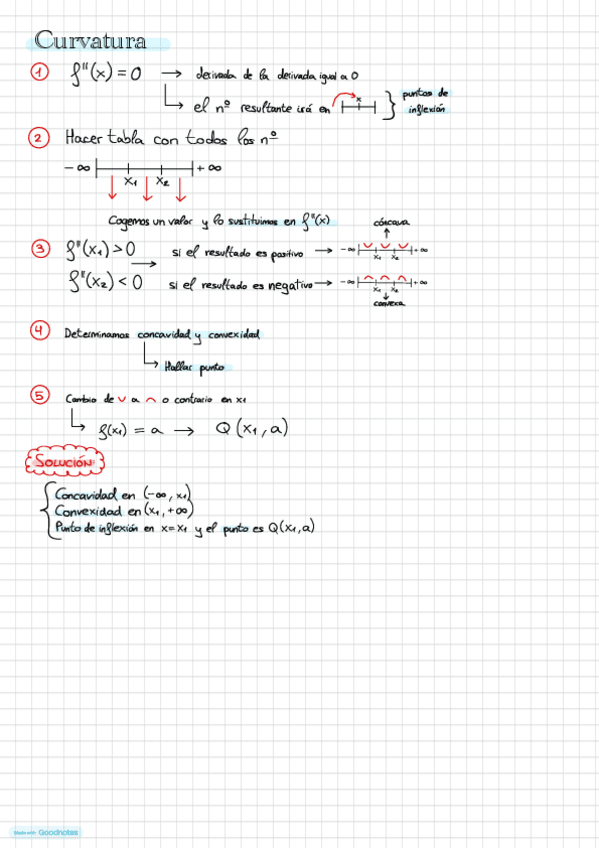 Curvatura
① f''(x) = 0 → derivada de la derivada igual a 0
↳ el nº resultante irá en x } puntos de inflexión
② Hacer tabla con todos los nº
-∞ x₁ x₂ +∞
Cogemos un valor y lo sustituimos en f''(x)
cóncava
③ f''(x₁) > 0 → si el resultado es positivo → -∞ ∪ ∪ ∪ +∞
x₁ x₂
f''(x₂) < 0 si el resultado es negativo → -∞ ∩ ∩ ∩ +∞
x₁ x₂
convexa
④ Determinamos concavidad y convexidad
↳ Hallar punto
⑤ Cambio de ∪ a ∩ o contrario en x₁
↳ f(x₁) = a → Q (x₁, a)
SOLUCIÓN:
Concavidad en (-∞, x₁)
Convexidad en (x₁, +∞)
Punto de inflexión en x = x₁ y el punto es Q(x₁, a)
Made with Goodnotes